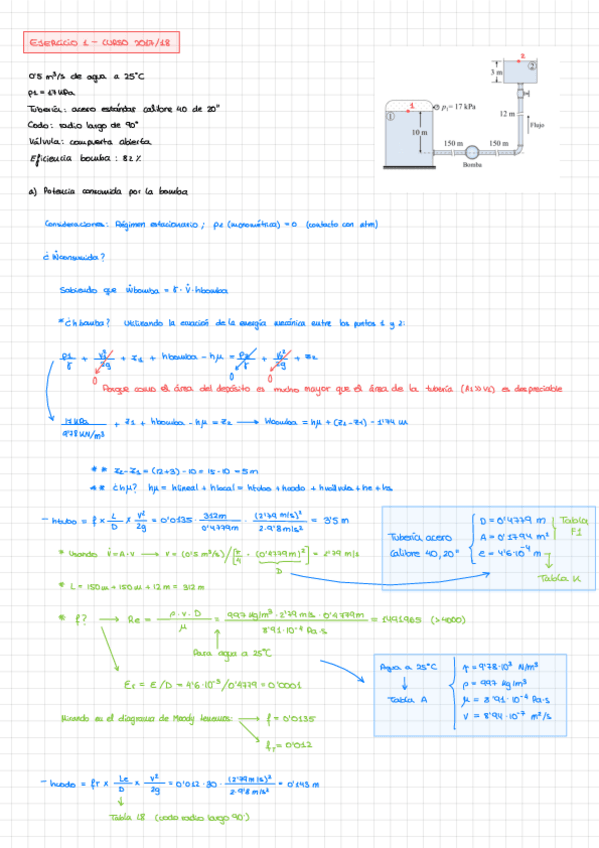 EJERCICIO 1 - CURSO 2017/18
0'5 m³/s de agua a 25°C
P1 = 17 kPa
Tubería: acero estándar calibre 40 de 20"
Codo: radio largo de 90°
Válvula: compuerta abierta
Eficiencia bomba: 82%
2
②
3 m
1
p₁= 17 kPa
①
12 m
10 m
Flujo
150 m
150 m
Bomba
a) Potencia consumida por la bomba
Consideraciones: Régimen estacionario; p2 (manométrica) = 0 (contacto con atm)
¿Ẇconsumida?
Sabiendo que Ẇbomba = γ · V̇ · hbomba
* ¿hbomba? Utilizando la ecuación de la energía mecánica entre los puntos 1 y 2:
P1/γ + V1²/2g + z1 + hbomba - hμ = P2/γ + V2²/2g + z2
0 0 0
Porque como el área del depósito es mucho mayor que el área de la tubería (A1>>A2) es despreciable
17 kPa / 9'78 kN/m³ + z1 + hbomba - hμ = z2 → hbomba = hμ + (z2-z1) - 1'74 m
** z2-z1 = (12+3) - 10 = 15-10 = 5 m
** ¿hμ? hμ = hlineal + hlocal = htubo + hcodo + hválvula + he + hs
- htubo = f × L/D × V²/2g = 0'0135 · 312m/0'4779m · (2'79 m/s)²/2·9'8 m/s² = 3'5 m
Tubería acero
Calibre 40, 20"
D = 0'4779 m
A = 0'1794 m²
Tabla F1
e = 4'6·10⁻⁴ m
Tabla K
* Usando V̇ = A·V → V = (0'5 m³/s) / [π/4 · (0'4779m)²] = 2'79 m/s
D
* L = 150m + 150m + 12m = 312m
* f? → Re = ρ·v·D / μ = 997 kg/m³ · 2'79 m/s · 0'4779m / 8'91·10⁻⁴ Pa·s = 1491965 (>4000)
Para agua a 25°C
Er = E/D = 4'6·10⁻⁵/0'4779 = 0'0001
Agua a 25°C
Tabla A
γ = 9'78·10³ N/m³
ρ = 997 kg/m³
μ = 8'91·10⁻⁴ Pa·s
V = 8'94·10⁻⁷ m²/s
en el diagrama de Moody tenemos: → f = 0'0135
fT = 0'012
- hcodo = fT × Le/D × V²/2g = 0'012 · 20 · (2'79 m/s)²/2·9'8 m/s² = 0'143 m
Tabla 1.8 (codo radio largo 90°)